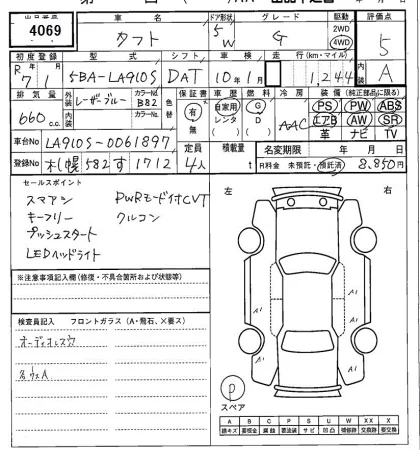 出品番号 車名 ドア形状 グレード 駆動 評価点
4069 タフト 5W G 2WD 4WD 5
初度登録 型式 シフト 車検 走行(km・マイル) 内装
R7/1 5BA-LA910S DAT 10年1月 1,244 A
排気量 外装 内装 カラーNo. 色替 保証書 車歴 燃料 冷房 装備(純正部品に限る)
660c.c. レーザーブルー B82 有 無 自家用 レンタ G D AAC PS PW ABS
カラーNo. エアB AW SR
革 ナビ TV
車台No LA910S-0061897 定員 積載量 名変期限 年 月 日
登録No 札幌582す1712 4人 t R料金 未預託・預託済 8,850円
セールスポイント
スマアシ PWRモード付CVT
キーフリー クルコン
プッシュスタート
LEDヘッドライト
左 右
※注意事項記入欄(修復・不具合箇所および状態等)
検査員記入 フロントガラス(A・飛石、×要ス)
オーディオレス
A1 A1
A1 A1
A1
P
スペア
A B C P S U W X XX